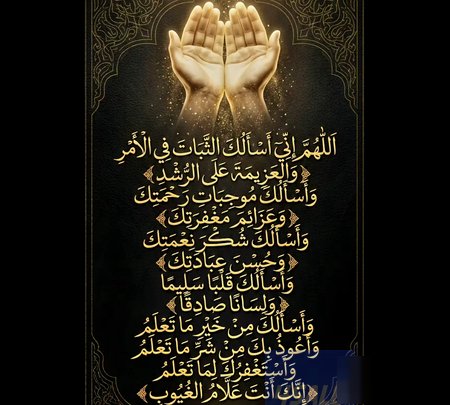 اَللّٰهُمَّ اِنِّيٓ اَسْأَلُكَ الثَّبَاتَ فِي الْأَمْرِ
﴿وَالْعَزِيمَةَ عَلَى الرُّشْدِ﴾
وَأَسْأَلُكَ مُوجِبَاتِ رَحْمَتِكَ
﴿وَعَزَائِمَ مَغْفِرَتِكَ﴾
وَأَسْأَلُكَ شُكْرَ نِعْمَتِكَ
﴿وَحُسْنَ عِبَادَتِكَ﴾
وَأَسْأَلُكَ قَلْبًا سَلِيمًا
﴿وَلِسَانًا صَادِقًا﴾
وَأَسْأَلُكَ مِنْ خَيْرِ مَا تَعْلَمُ
وَأَعُوذُ بِكَ مِنْ شَرِّ مَا تَعْلَمُ
وَأَسْتَغْفِرُكَ لِمَا تَعْلَمُ
﴿إِنَّكَ أَنْتَ عَلَّامُ الْغُيُوبِ﴾